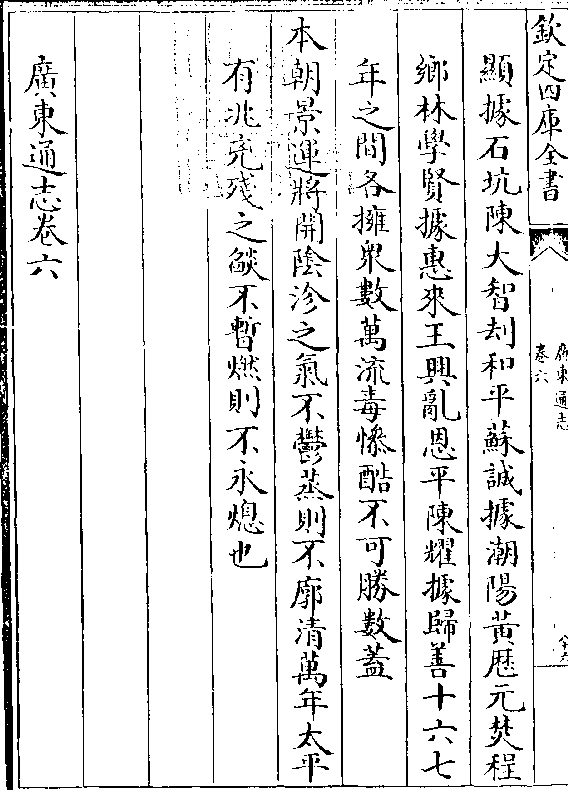 欽定四庫全書
廣東通志
卷六
顯據石坑陳大智刦和平蘇誠據潮陽黃歴元焚程
鄉林學賢據惠來王興亂恩平陳耀據歸善十六七
年之間各擁衆數萬流毒慘酷不可勝數蓋
本朝景運將開陰沴之氣不鬱蒸則不廓清萬年太平
有兆兇殘之燄不暫燃則不永熄也
廣東通志卷六